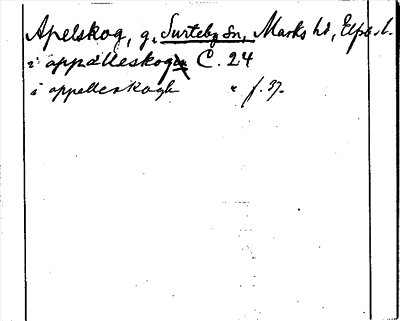 Apelskog, g. Surteby sn, Marks hd, Elfsb. l.
i appälleskogh C. 24
i appelleskogh " f. 37.